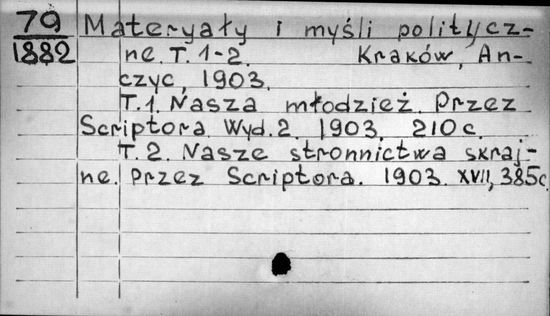 79
1882
Materyały i myśli politycz-
ne. T. 1-2. Kraków, An-
czyc, 1903.
T. 1. Nasza młodzież. Przez
Scriptora. Wyd. 2. 1903. 210 c.
T. 2. Nasze stronnictwa skraj-
ne. Przez Scriptora. 1903. XVII, 385c.